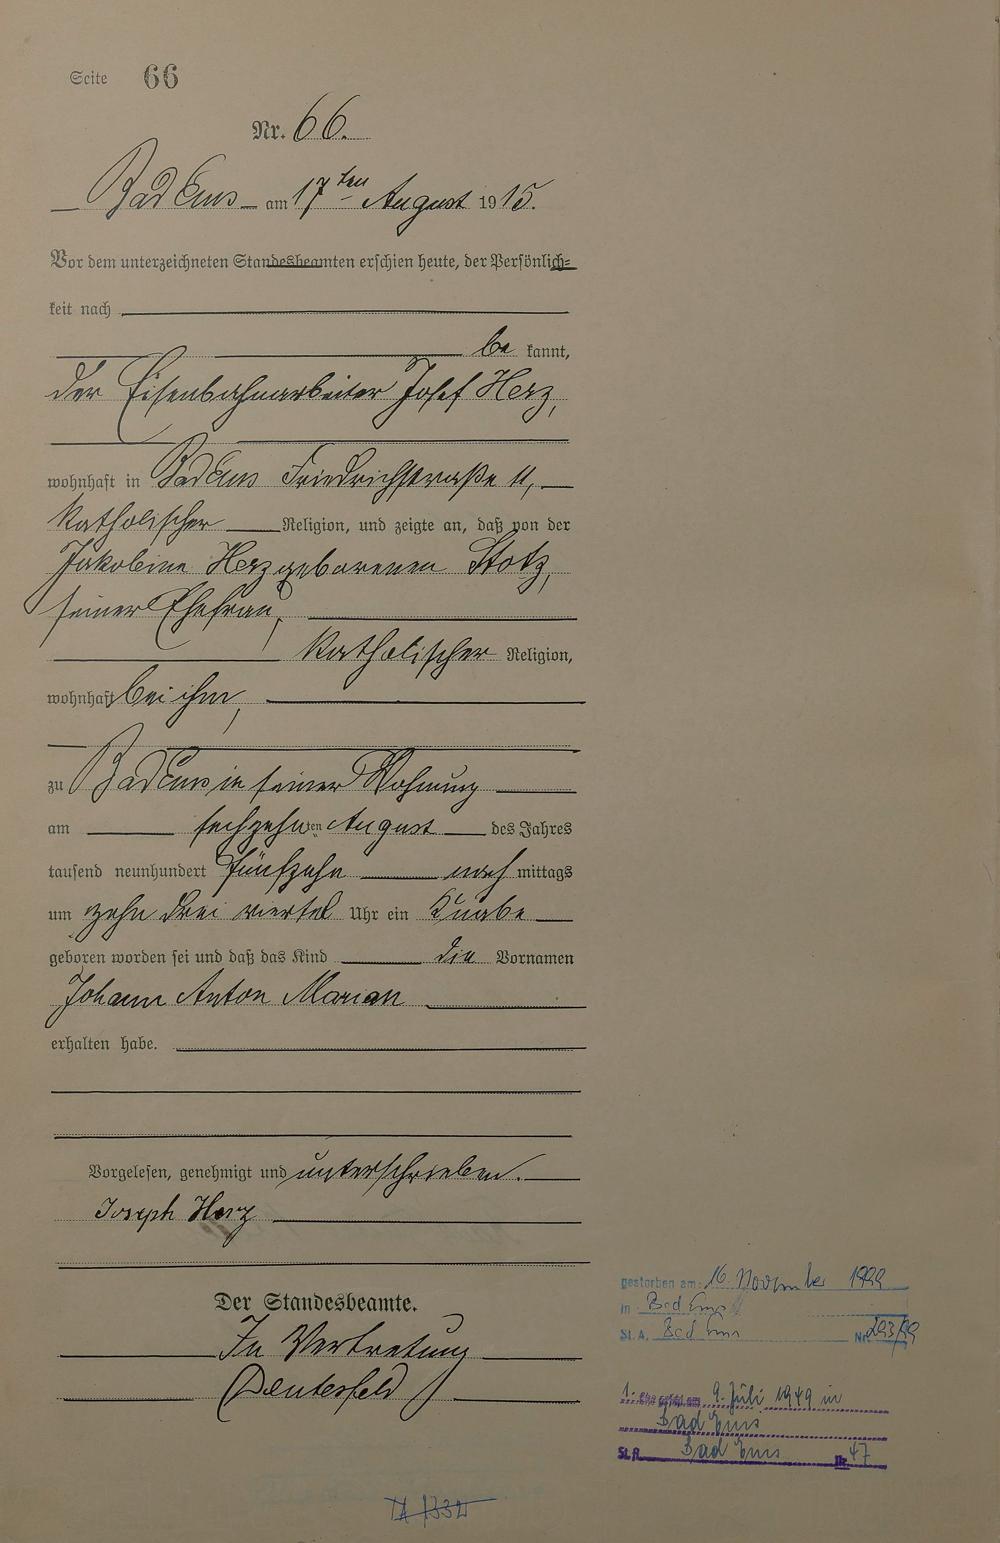 Seite 66
Nr. 66.
Bad Ems am 17ten August 1915.
Vor dem unterzeichneten Standesbeamten erschien heute, der Persönlich-
keit nach
be kannt,
der Eisenbahnarbeiter Josef Herz,
wohnhaft in Bad Ems Friedrichstraße 11,
katholischer Religion, und zeigte an, daß von der
Jakobine Herz geborenen Stotz,
seiner Ehefrau,
katholischer Religion,
wohnhaft bei ihm,
zu Bad Ems in seiner Wohnung
am sechzehnten August des Jahres
tausend neunhundert fünfzehn nach mittags
um zehn drei viertel Uhr ein Knabe
geboren worden sei und daß das Kind die Vornamen
Johann Anton Marian
erhalten habe.
Vorgelesen, genehmigt und unterschrieben.
Joseph Herz
Der Standesbeamte.
In Vertretung
Deutesfeld
gestorben am: 16. November 1999
in Bad Ems
St. A. Bad Ems Nr. 293/99
1. Ehe geschl. am 9. Juli 1949 in
Bad Ems
St. A. Bad Ems Nr. 47